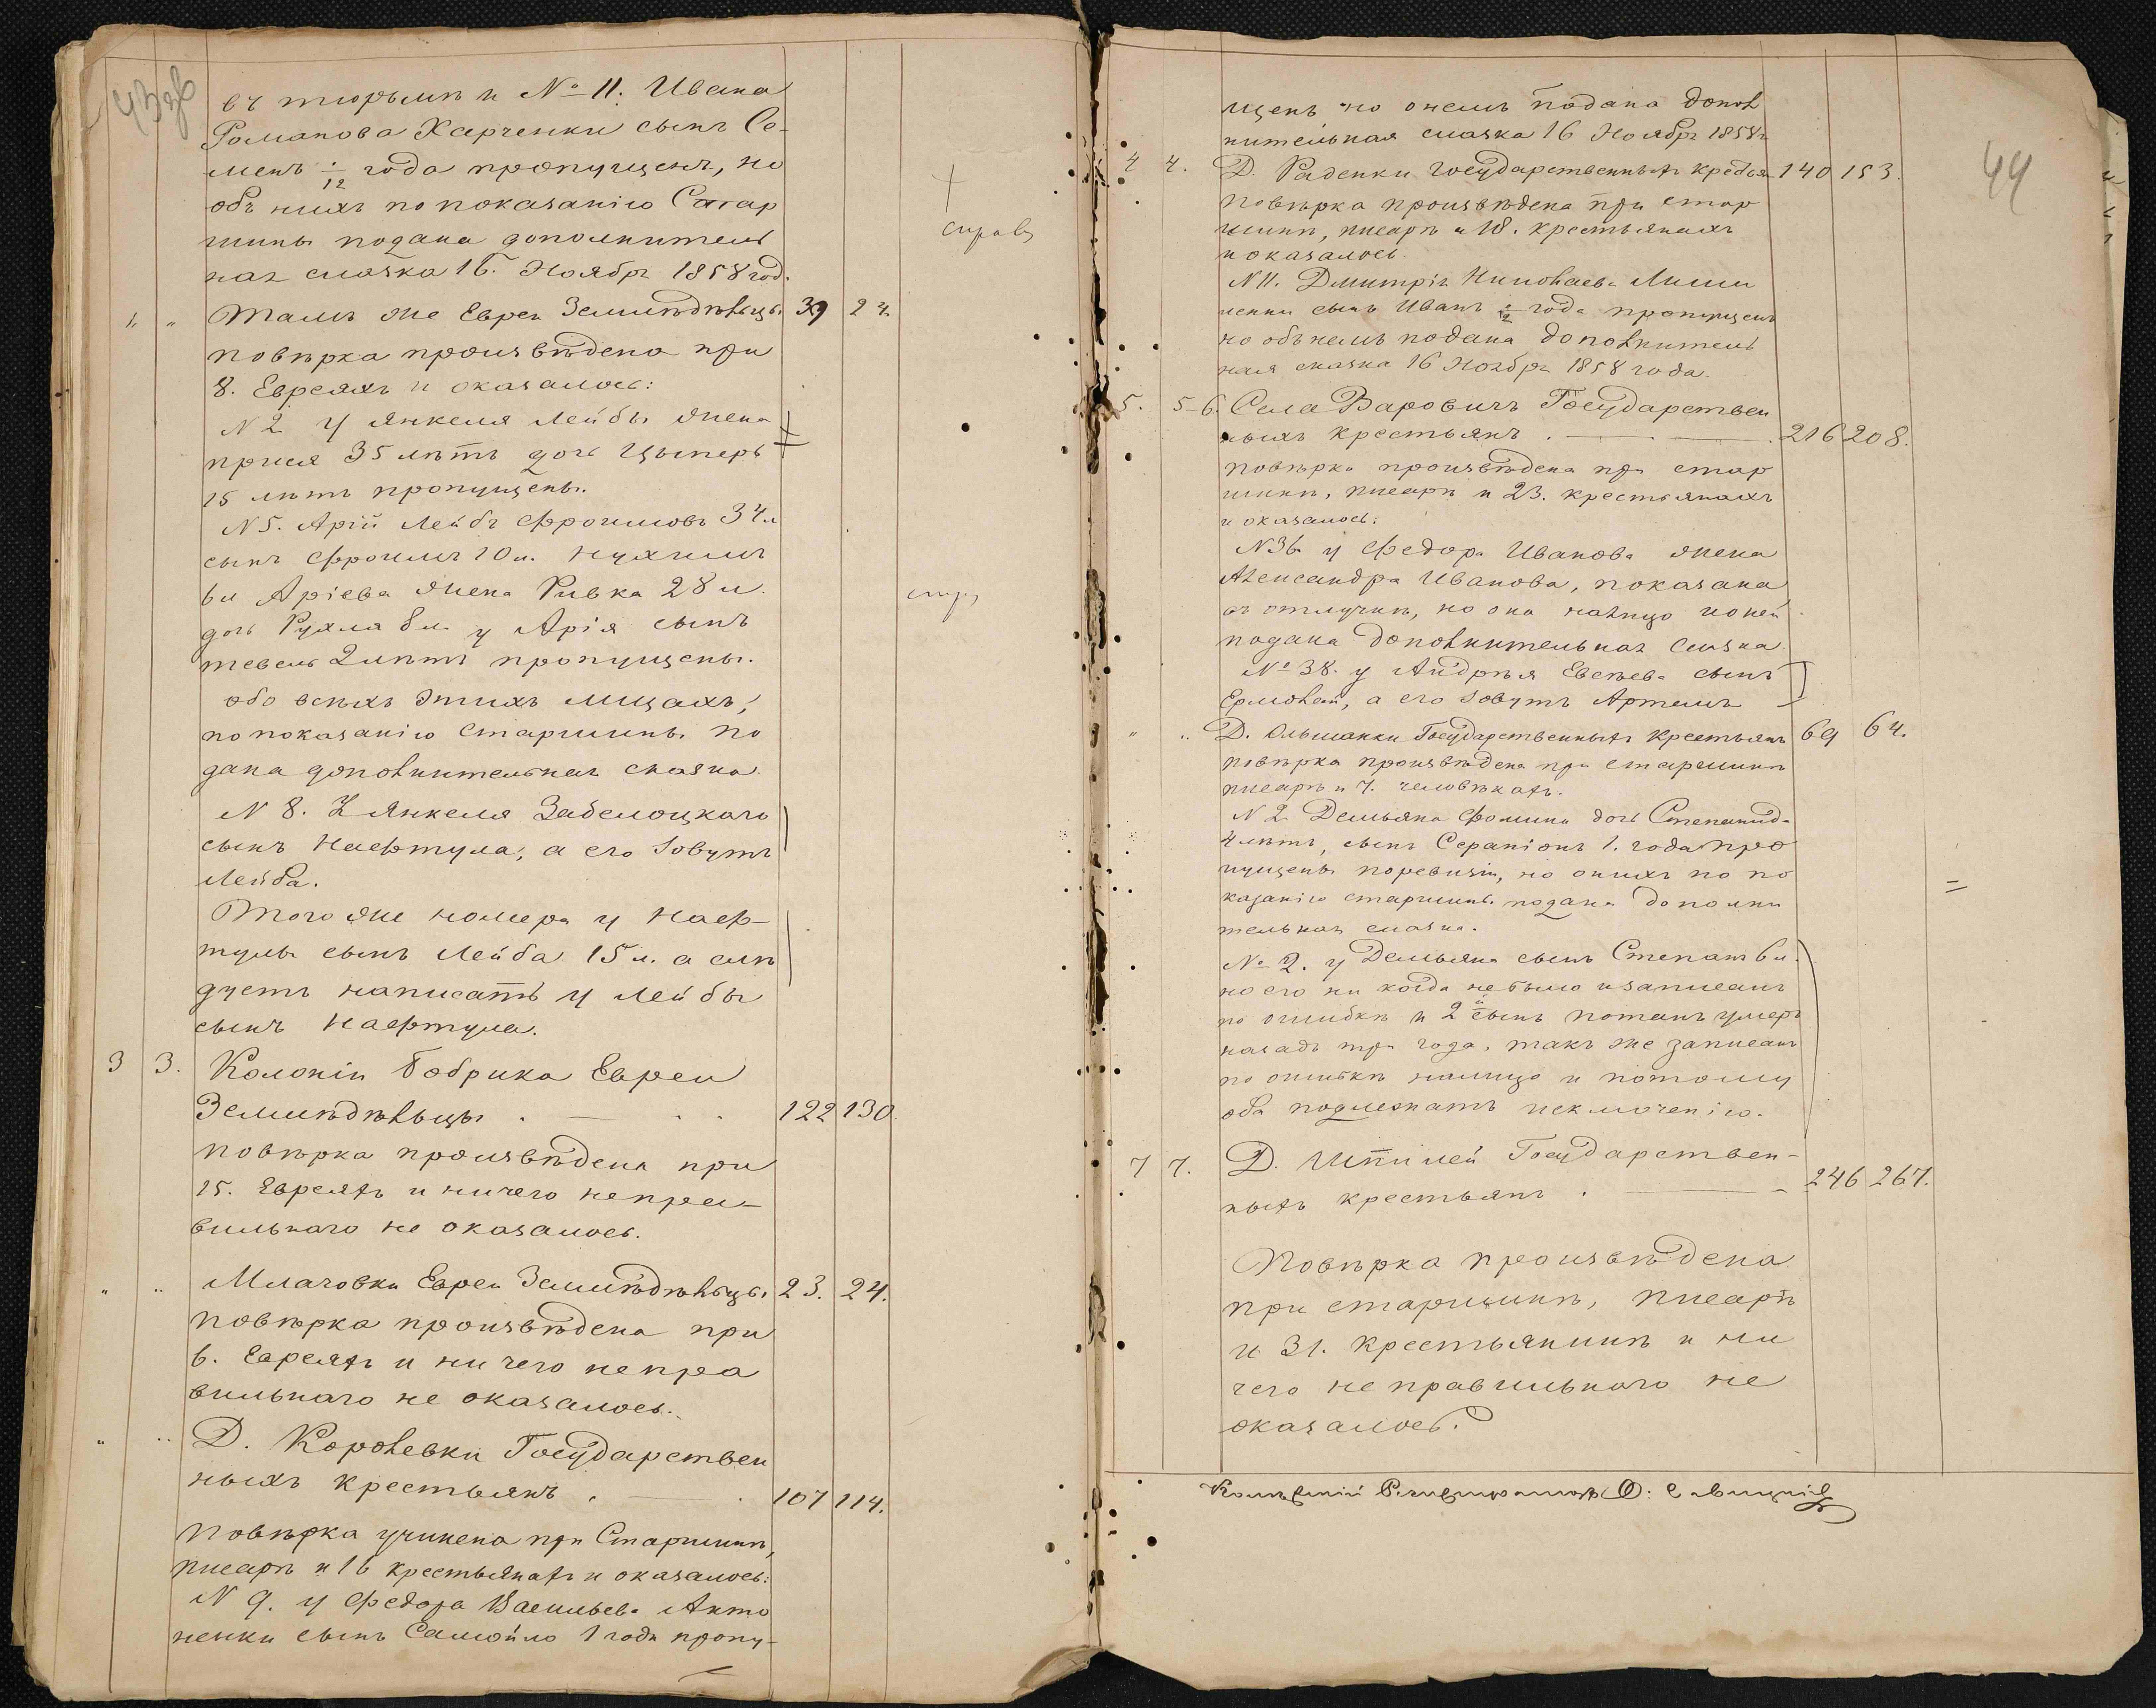 43 об
въ тюрьмѣ и № 11. Ивана
Романова Харченки сынъ Се-
менъ 1/12 года пропущенъ, но
объ нихъ по показанію Стар
шины подана дополнитель
ная сказка 16. Ноября 1858 год.
Тамъ же Евреи Земледѣльцы 39 24.
повѣрка произвѣдена при
8. Евреяхъ и оказалось:
N 2 у Янкеля Лейбы жена
15 лѣтъ пропущены.
N 5. Арій Лейбъ Фроимовъ 34 л
сынъ Фроимъ 10 л. Нухимъ
6 л Аріева жена Ривка 28 л.
дочь Рухла 8 л. у Арія сынъ
тевель 2 лѣтъ пропущены.
обо всѣхъ этихъ лицахъ,
по показанію Старшины по
дана дополнительная сказка.
N 8. У Янкеля Забелоцкаго
сынъ Нафтула, а его зовутъ
Лейба.
Того же номера у Наф-
тулы сынъ Лейба 15 л. а слѣ
дуетъ написать у Лейбы
сынъ Нафтула.
3 3. Колоніи Бобрика Евреи
Земледѣльцы . 122 130
повѣрка произвѣдена при
15. Евреяхъ и ничего непра-
вильнаго не оказалось.
" " Млачовки Евреи Земледѣльцы 23. 24.
повѣрка произвѣдена при
6. Евреяхъ и ни чего непра
вильнаго не оказалось.
" " Д. Королевки Государствен
ныхъ крестьянъ . 107 114.
повѣрка учинена при Старшинѣ,
писарѣ и 16 крестьянахъ и оказалось:
N 9. у Федора Васильева Анто
ненки сынъ Самойло 1 года пропу-
справ
44
щенъ но онемъ подана допол
нительная сказка 16 Ноября 1858 г
4 4. Д. Раденки государственныхъ крестьян 140 153.
повѣрка произвѣдена при стар
шинѣ, писарѣ и 18. крестьянахъ
и оказалось.
N 11. Дмитрія Николаева
ненки сынъ Иванъ года пропущенъ
но объ немъ подана дополнитель
ная сказка 16 Ноября 1858 года.
5. 5-6. Села Варовичъ Государствен
ныхъ крестьянъ . 216 208.
повѣрка произвѣдена при стар
шинѣ, писарѣ и 23. крестьянахъ
и оказалось:
N 36 у Федора Иванова жена
Александра Иванова, показана
въ отлучкѣ, но она налицо и о ней
подана дополнительная сказка.
№ 38. у Андрѣя Евсѣева сынъ
Ермолай, а его зовутъ Артемъ
" " Д. Ольшанки Государственныхъ крестьянъ 69 64.
повѣрка произвѣдена при старшинѣ
писарѣ и 7. человѣкахъ.
N 2 Демьяна Фомина дочь Степанида
4 лѣтъ, сынъ Серапіонъ 1. года про
пущены поревизіи, но онихъ по по
казанію старшины подана дополни
тельная сказка.
№ 2. у Демьяна сынъ Степанъ 6 л.
но его ни когда небыло и записанъ
по ошибкѣ и 2й сынъ Потапъ умеръ
назадъ три года, такъ же записанъ
по ошибкѣ налицо и потому
оба подлежатъ исключенію.
7 7. Д. Шпилей Государствен-
ныхъ крестьянъ . 246 267.
Повѣрка произвѣдена
при старшинѣ, писарѣ
и 31. крестьянинѣ и ни
чего не правильнаго не
оказалось.